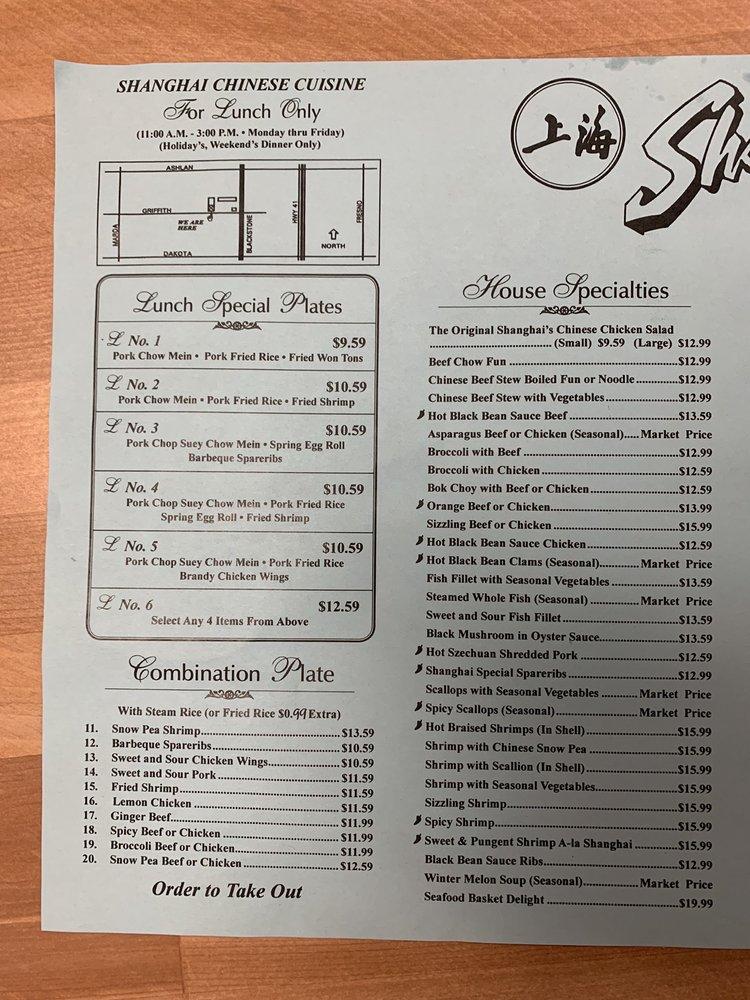 SHANGHAI CHINESE CUISINE
For Lunch Only
(11:00 A.M. - 3:00 P.M. • Monday thru Friday)
(Holiday's, Weekend's Dinner Only)
ASHLAN
GRIFFITH
WE ARE
HERE
MAROA
BLACKSTONE
HWY 41
FRESNO
NORTH
DAKOTA
Lunch Special Plates
L No. 1 $9.59
Pork Chow Mein • Pork Fried Rice • Fried Won Tons
L No. 2 $10.59
Pork Chow Mein • Pork Fried Rice • Fried Shrimp
L No. 3 $10.59
Pork Chop Suey Chow Mein • Spring Egg Roll
Barbeque Spareribs
L No. 4 $10.59
Pork Chop Suey Chow Mein • Pork Fried Rice
Spring Egg Roll • Fried Shrimp
L No. 5 $10.59
Pork Chop Suey Chow Mein • Pork Fried Rice
Brandy Chicken Wings
L No. 6 $12.59
Select Any 4 Items From Above
Combination Plate
With Steam Rice (or Fried Rice $0.99 Extra)
11. Snow Pea Shrimp $13.59
12. Barbeque Spareribs $10.59
13. Sweet and Sour Chicken Wings $10.59
14. Sweet and Sour Pork $11.59
15. Fried Shrimp $11.59
16. Lemon Chicken $11.59
17. Ginger Beef $11.99
18. Spicy Beef or Chicken $11.99
19. Broccoli Beef or Chicken $11.99
20. Snow Pea Beef or Chicken $12.59
Order to Take Out
上海
Sh
House Specialties
The Original Shanghai's Chinese Chicken Salad
(Small) $9.59 (Large) $12.99
Beef Chow Fun $12.99
Chinese Beef Stew Boiled Fun or Noodle $12.99
Chinese Beef Stew with Vegetables $12.99
Hot Black Bean Sauce Beef $13.59
Asparagus Beef or Chicken (Seasonal) Market Price
Broccoli with Beef $12.99
Broccoli with Chicken $12.59
Bok Choy with Beef or Chicken $12.59
Orange Beef or Chicken $13.99
Sizzling Beef or Chicken $15.99
Hot Black Bean Sauce Chicken $12.59
Hot Black Bean Clams (Seasonal) Market Price
Fish Fillet with Seasonal Vegetables $13.59
Steamed Whole Fish (Seasonal) Market Price
Sweet and Sour Fish Fillet $13.59
Black Mushroom in Oyster Sauce $13.59
Hot Szechuan Shredded Pork $12.59
Shanghai Special Spareribs $12.99
Scallops with Seasonal Vegetables Market Price
Spicy Scallops (Seasonal) Market Price
Hot Braised Shrimps (In Shell) $15.99
Shrimp with Chinese Snow Pea $15.99
Shrimp with Scallion (In Shell) $15.99
Shrimp with Seasonal Vegetables $15.99
Sizzling Shrimp $15.99
Spicy Shrimp $15.99
Sweet & Pungent Shrimp A-la Shanghai $15.99
Black Bean Sauce Ribs $12.99
Winter Melon Soup (Seasonal) Market Price
Seafood Basket Delight $19.99